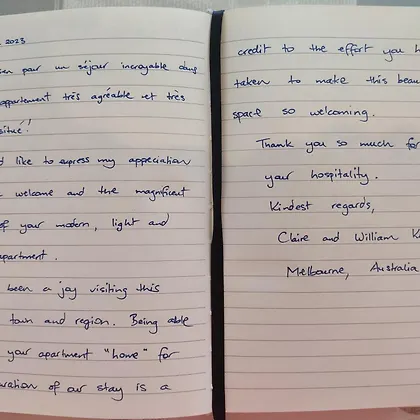 2023
pour un séjour incroyable dans
appartement très agréable et très
situé!
like to express my appeciation
welcome and the magnificent
of your modern, light and
apartment.
been a joy visiting this
town and region. Being able
your apartment "home" for
of our stay is a
credit to the effort you
taken to make this
space so welcoming.
Thank you so much for
your hospitality.
Kindest regards,
Claire and William
Melbourne, Australia